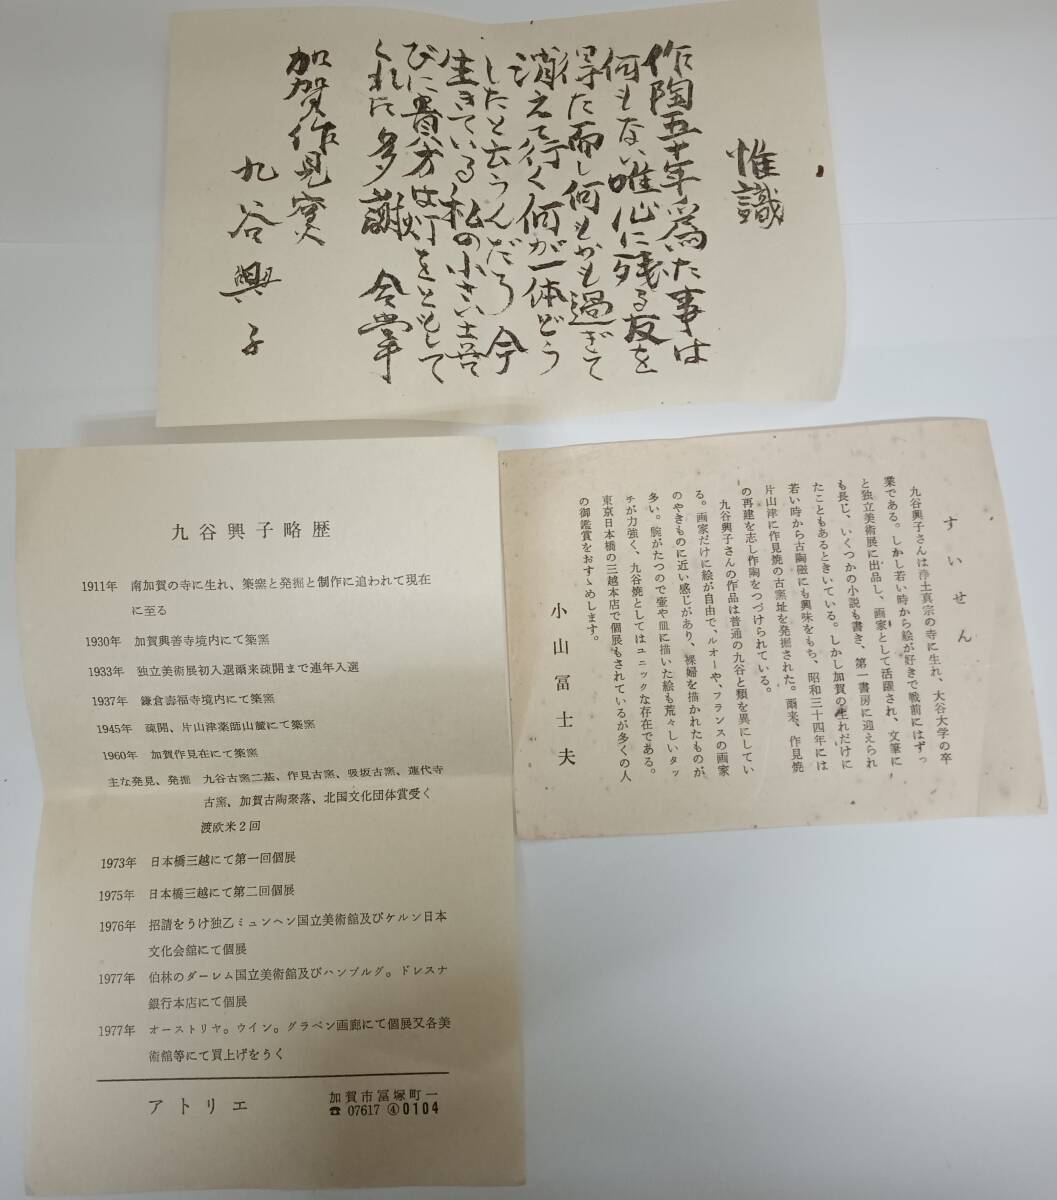 惟識
作陶五十年為た事は
何もない唯心に残る友を
得た而し何もかも過ぎて
消えて行く何が一体どう
したと云うんだろう今
生きている私の小さい古窯
びに貴方は灯をともして
くれた多謝 合掌
加賀作見窯
九谷興子
すいせん
九谷興子さんは浄土真宗の寺に生れ、大谷大学の卒
業である。しかし若い時から絵が好きで戦前にはずっ
と独立美術展に出品し、画家として活躍され、文筆に
も長じ、いくつかの小説も書き、第一書房に迎えられ
たこともあるときいている。しかし加賀の生れだけに
若い時から古陶磁にも興味をもち、昭和三十四年には
片山津に作見焼の古窯址を発掘された。爾来、作見焼
の再建を志し作陶をつづけられている。
九谷興子さんの作品は普通の九谷と類を異にしてい
る。画家だけに絵が自由で、ルオーや、フランスの画家
のやきものに近い感じがあり、裸婦を描かれたものが
多い。腕がたつので壷や皿に描いた絵も荒々しいタッ
チが力強く、九谷焼としてはユニックな存在である。
東京日本橋の三越本店で個展もされているが多くの人
の御鑑賞をおすゝめします。
小山冨士夫
九谷興子略歴
1911年 南加賀の寺に生れ、築窯と発掘と制作に追われて現在
に至る
1930年 加賀興善寺境内にて築窯
1933年 独立美術展初入選爾来疎開まで連年入選
1937年 鎌倉壽福寺境内にて築窯
1945年 疎開、片山津薬師山麓にて築窯
1960年 加賀作見在にて築窯
主な発見、発掘 九谷古窯二基、作見古窯、吸坂古窯、蓮代寺
古窯、加賀古陶聚落、北国文化団体賞受く
渡欧米2回
1973年 日本橋三越にて第一回個展
1975年 日本橋三越にて第二回個展
1976年 招請をうけ独乙ミュンヘン国立美術館及びケルン日本
文化会館にて個展
1977年 伯林のダーレム国立美術館及びハンブルグ。ドレスナ
銀行本店にて個展
1977年 オーストリヤ。ウイン。グラベン画廊にて個展又各美
術館等にて買上げをうく
アトリエ
加賀市冨塚町一
☎ 07617 ④ 0104